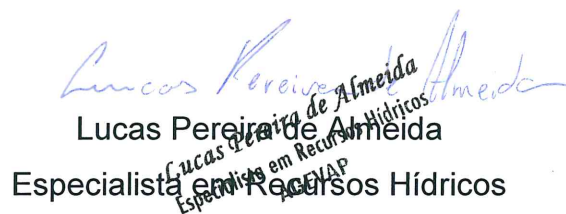 Lucas Pereira de Almeida
Lucas Pereira de Almeida
Especialista em Recursos Hídricos
Lucas Pereira de Almeida
Especialista em Recursos Hídricos
AGEVAP